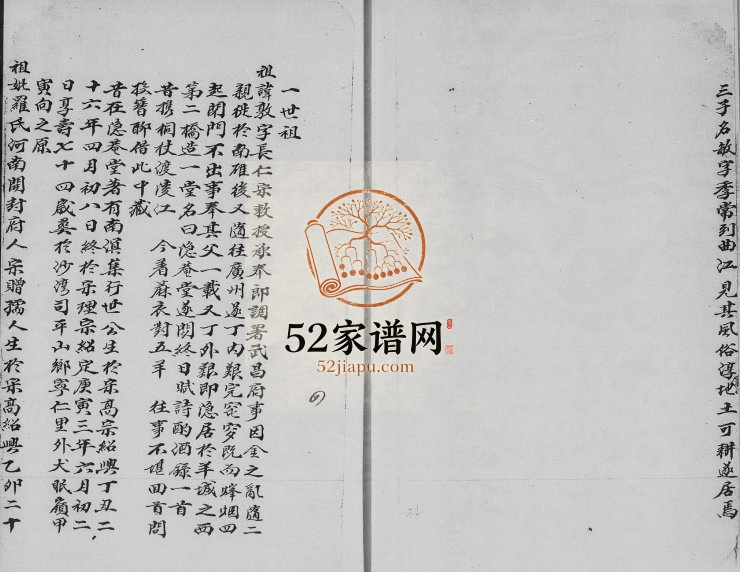 三子名敏字季常到曲江見其風俗淳地土可耕遂居焉
一世祖
祖諱敦字長仁宗教授承奉郎調署武昌府事因金之亂隨二
親徙於南雄後又隨往廣州遂丁內艱完窀穸既而烽烟四
起閉門不出事奉其父一載又丁外艱即隱居於羊城之西
第二橋造一堂名曰隐菴堂遂閉終日賦詩酌酒錄一首
昔携桐杖渡凌江 今着蔴衣對五羊 往事不堪回首問
投簪聊借此中藏
昔在隐菴堂著有南溟集行世公生於宋高宗紹興丁丑二
十六年四月初八日終於宋理宗紹定庚寅三年六月初二
日享壽七十四歲塟於沙灣司平山鄉寧仁里外犬眠嶺甲
寅向之原
祖妣羅氏河南開封府人宗贈孺人生於宋高紹興乙卯二十
52家谱网
52jiapu.com